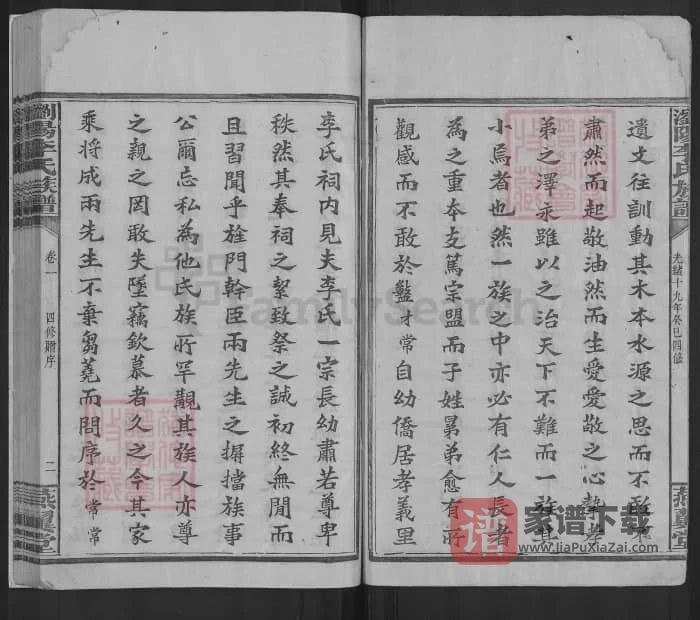 遺文往訓動其木本水源之思而不敢不
肅然而起敬油然而生愛愛敬之心摯孝
弟之澤永雖以之治天下不難而一族其
小焉者也然一族之中亦必有仁人長者
為之重本支篤宗盟而子姓舅弟愈有所
觀感而不敢於盩才常自幼僑居孝義里
瀏陽李氏族譜
光緒十九年癸巳四修
燕翼堂
李氏祠內見夫李氏一宗長幼肅若尊卑
秩然其奉祠之絜致祭之誠初終無閒而
且習聞乎旌門幹臣兩先生之摒擋族事
公爾忘私為他氏族所罕觀其族人亦尊
之親之罔敢失墜竊欽慕者久之今其家
乘將成兩先生不棄芻蕘而問序於常常
瀏陽李氏族譜
卷一
四修贈序
二
燕翼堂
FamilySearch
家谱下载
www.JiaPuXiaZai.com